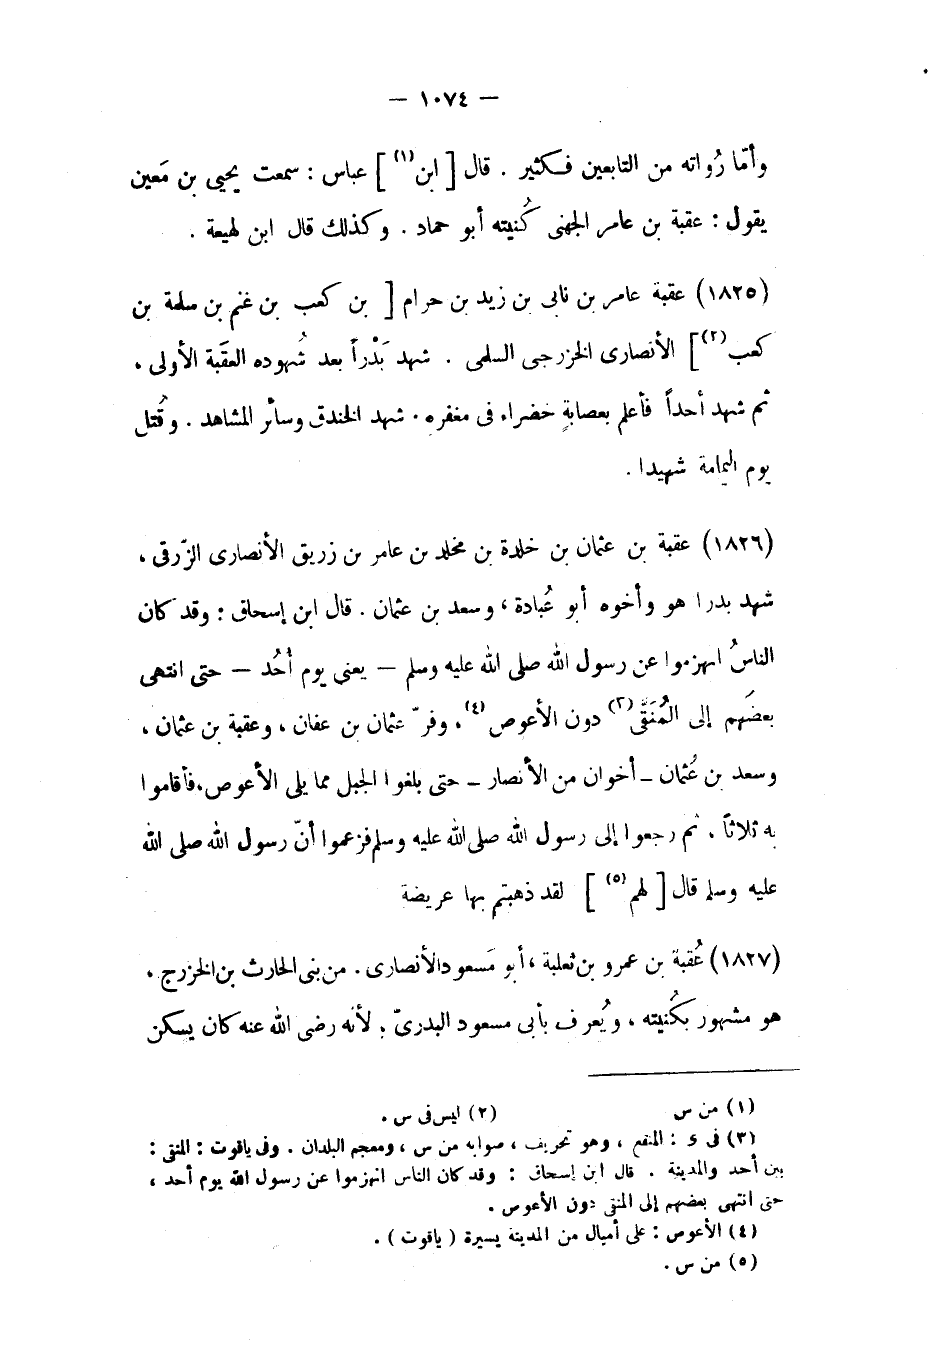 — ١٠٧٤ —
وأمّا رُواته من التابعين فكثير . قال [ ابن (١) ] عباس : سمعت يحيى بن مَعين
يقول : عقبة بن عامر الجهنى كُنيته أبو حماد . وكذلك قال ابن لهيعة .
(١٨٢٥) عقبة عامر بن نابى بن زيد بن حرام [ بن كعب بن غنم بن سلمة بن
كعب (٢) ] الأنصارى الخزرجى السلمى . شهد بَدْراً بعد شُهوده العقَبة الأولى ،
ثم شهد أحداً فأعلم بعصابةٍ خضراء فى مغفره . شهد الخندق وسائر المشاهد . وقُتل
يوم اليمامة شهيدا .
(١٨٢٦) عقبة بن عثمان بن خلدة بن مخلد بن عامر بن زريق الأنصارى الزّرقى ،
شهد بدرا هو وأخوه أبو عُبادة ، وسعد بن عثمان . قال ابن إسحاق : وقد كان
الناسُ انهزموا عن رسول الله صلى الله عليه وسلم — يعنى يوم أُحُد — حتى انتهى
بعضَهم إلى المُنَقَّى (٣) دون الأعوص (٤) ، وفرّ عثمان بن عفان ، وعقبة بن عثمان ،
وسعد بن عُثمان - أخوان من الأنصار - حتى بلغوا الجبل مما يلى الأعوص ، فأقاموا
به ثلاثاً ، ثم رجعوا إلى رسول الله صلى الله عليه وسلم فزعموا أنّ رسول الله صلى الله
عليه وسلم قال [ لهم (٥) ] لقد ذهبتم بها عريضة
(١٨٢٧) عُقبة بن عمرو بن ثعلبة ، أبو مَسعود الأنصارى . من بنى الحارث بن الخزرج ،
هو مشهور بكُنيته ، ويُعرف بأبى مسعود البدرىّ ، لأنه رضى الله عنه كان يسكن
(١) من س (٢) ليس فى س .
(٣) فى ى : المنقع ، وهو تحريف ، صوابه من س ، ومعجم البلدان . وفى ياقوت : المنقى :
بين أحد والمدينة . قال ابن إسحاق : وقد كان الناس انهزموا عن رسول الله يوم أحد ،
حتى انتهى بعضهم إلى المنقى دون الأعوص .
(٤) الأعوص : على أميال من المدينة يسيرة ( ياقوت ) .
(٥) من س .